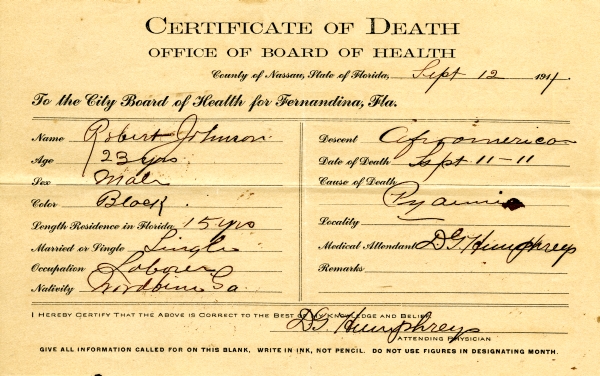 CERTIFICATE OF DEATH
OFFICE OF BOARD OF HEALTH
County of Nassau, State of Florida, Sept 12 1911.
To the City Board of Health for Fernandina, Fla.
Name Robert Johnson
Age 23 yrs
Sex Male
Color Black
Length Residence in Florida 15 yrs
Married or Single Single
Occupation Laborer
Nativity Woodbine Ga
Descent Afroamerican
Date of Death Sept 11-11
Cause of Death
Pyaemia
Locality
Medical Attendant D G Humphreys
Remarks
I HEREBY CERTIFY THAT THE ABOVE IS CORRECT TO THE BEST OF MY KNOWLEDGE AND BELIEF
D G Humphreys
ATTENDING PHYSICIAN
GIVE ALL INFORMATION CALLED FOR ON THIS BLANK, WRITE IN INK, NOT PENCIL. DO NOT USE FIGURES IN DESIGNATING MONTH.